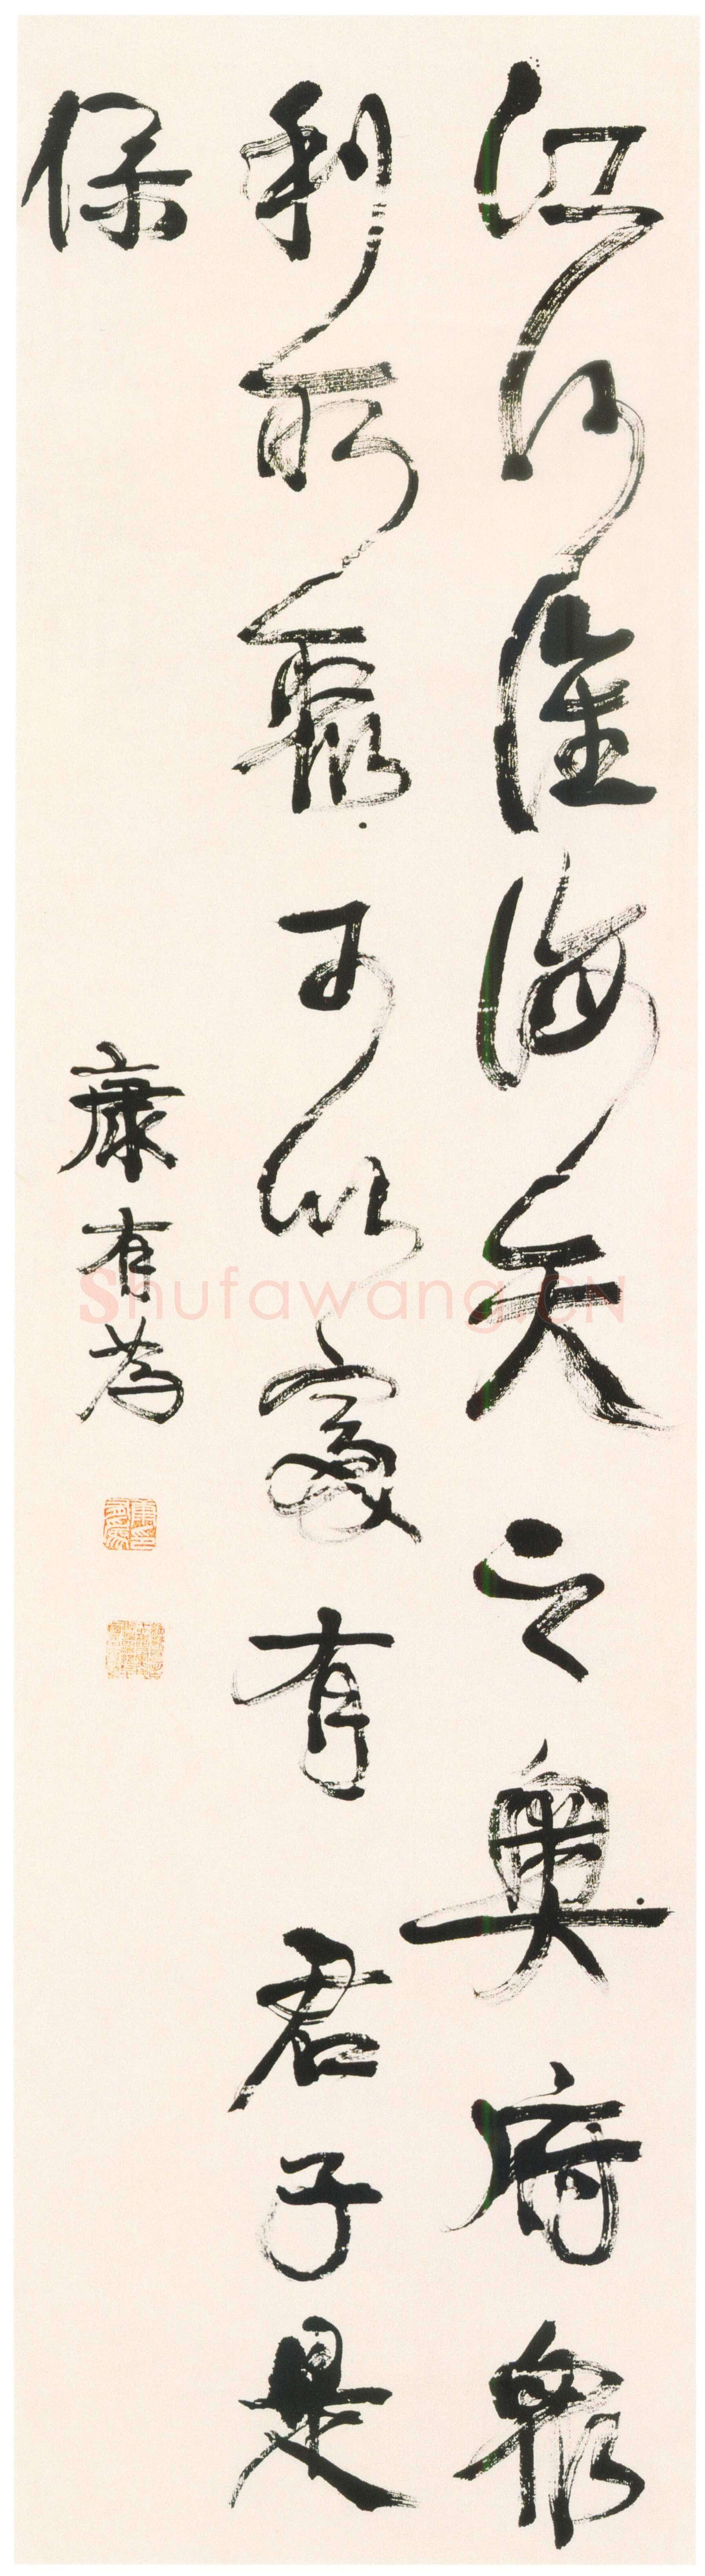 江河淮海天之奧府眾
利所聚可以富有君子是
保
康有為
Shufawang.CN